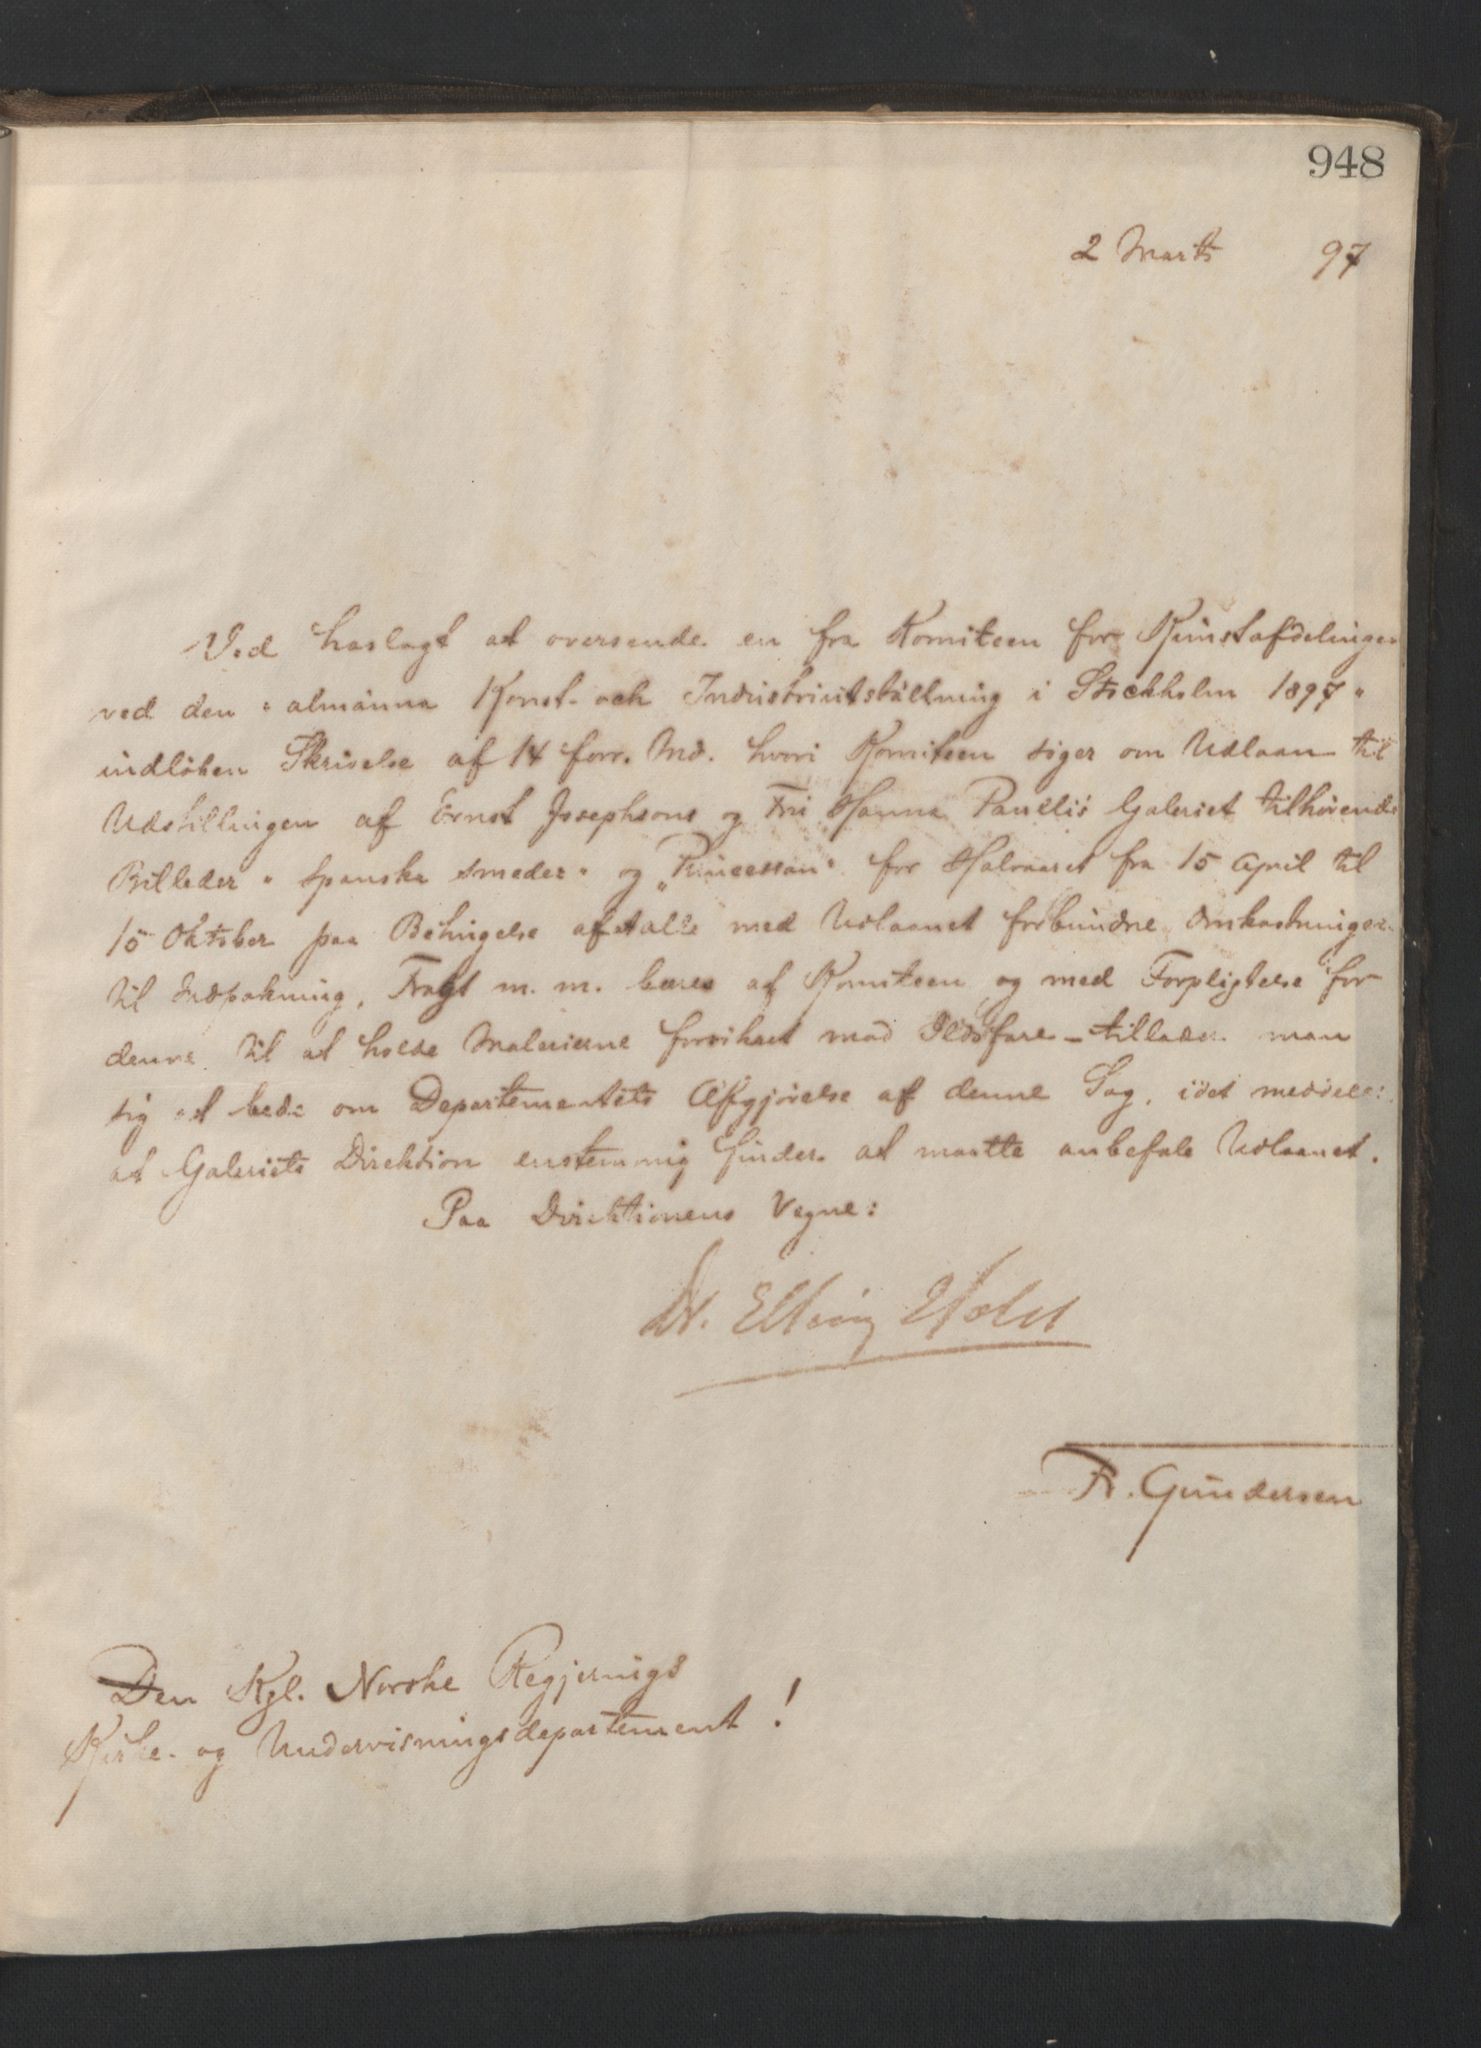 948
2 Marts 97
Ved hoslagt at oversende en fra Komiteen for Kunstafdelingen
ved den "almänna Konst- och Industriutställning i Stockholm 1897"
indløben Skrivelse af 14 forr. Md. hvori Komiteen søger om Udlaan til
Udstillingen af Ernst Josephsons og Fru Hanna Paulis Galeriet tilhørende
Billeder "Spanska smeder" og "Princessan" for Halvaaret fra 15 April til
15 Oktober paa Betingelse af at alle med Udlaanet forbundne Omkostninger
til Indpakning, Fragt m. m. bæres af Komiteen og med Forpligtelse for
denne til at holde Malerierne forsikret mod Ildsfare - tillader man
sig at bede om Departementets Afgjørelse af denne Sag, idet meddeles
at Galeriets Direktion enstemmig finder at maatte anbefale Udlaanet.
Paa Direktionens Vegne:
Dr. Elling Holst
Fr. Gundersen
Den Kgl. Norske Regjerings
Kirke- og Undervisningsdepartement!